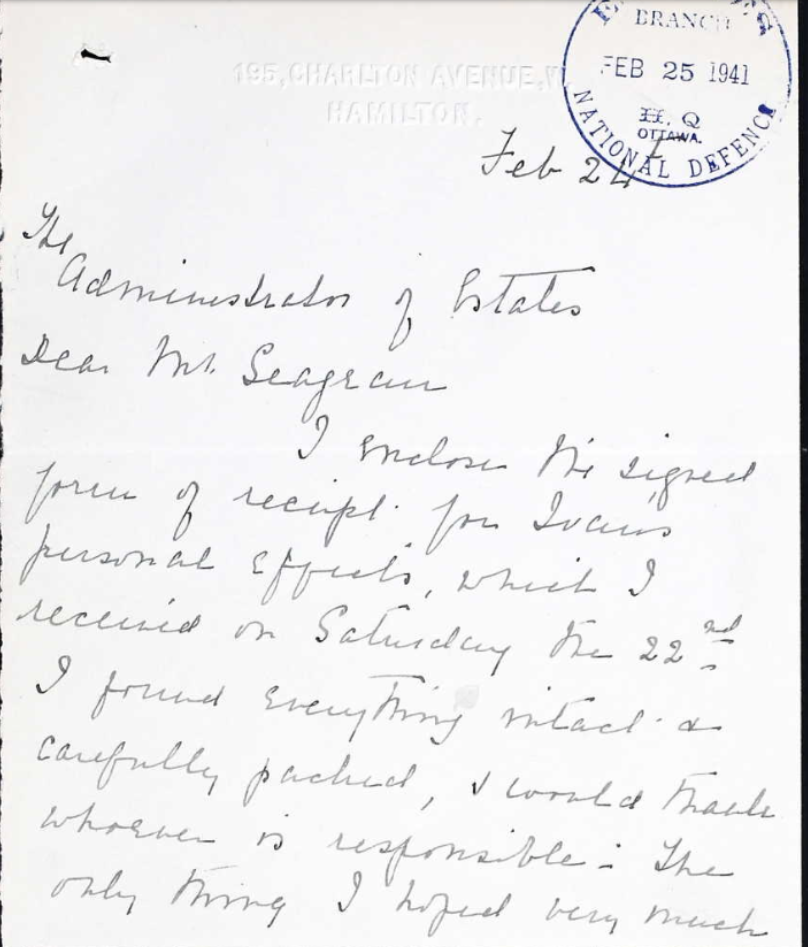 BRANCH
FEB 25 1941
H. Q
OTTAWA.
NATIONAL DEFENCE
195, CHARLTON AVENUE, W.
HAMILTON.
Feb 24
The
Administrator of Estates
Dear Mr. Seagram
I enclose the signed
form of receipt for Ivan's
personal effects, which I
received on Saturday the 22nd
I found everything intact &
carefully packed, & would thank
whoever is responsible. The
only thing I hoped very much